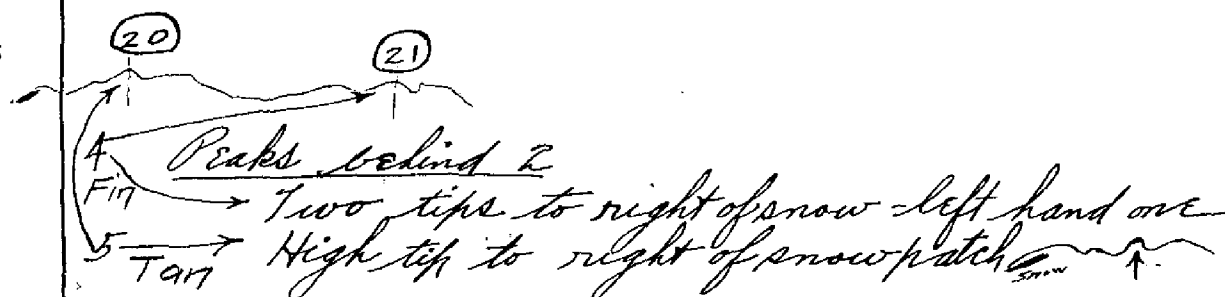 20
21
4 Peaks behind 2
Fin Two tips to right of snow - left hand one
5 High tip to right of snow patch snow
Tan